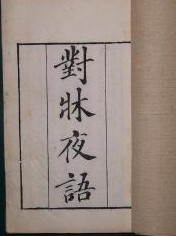 對牀夜語